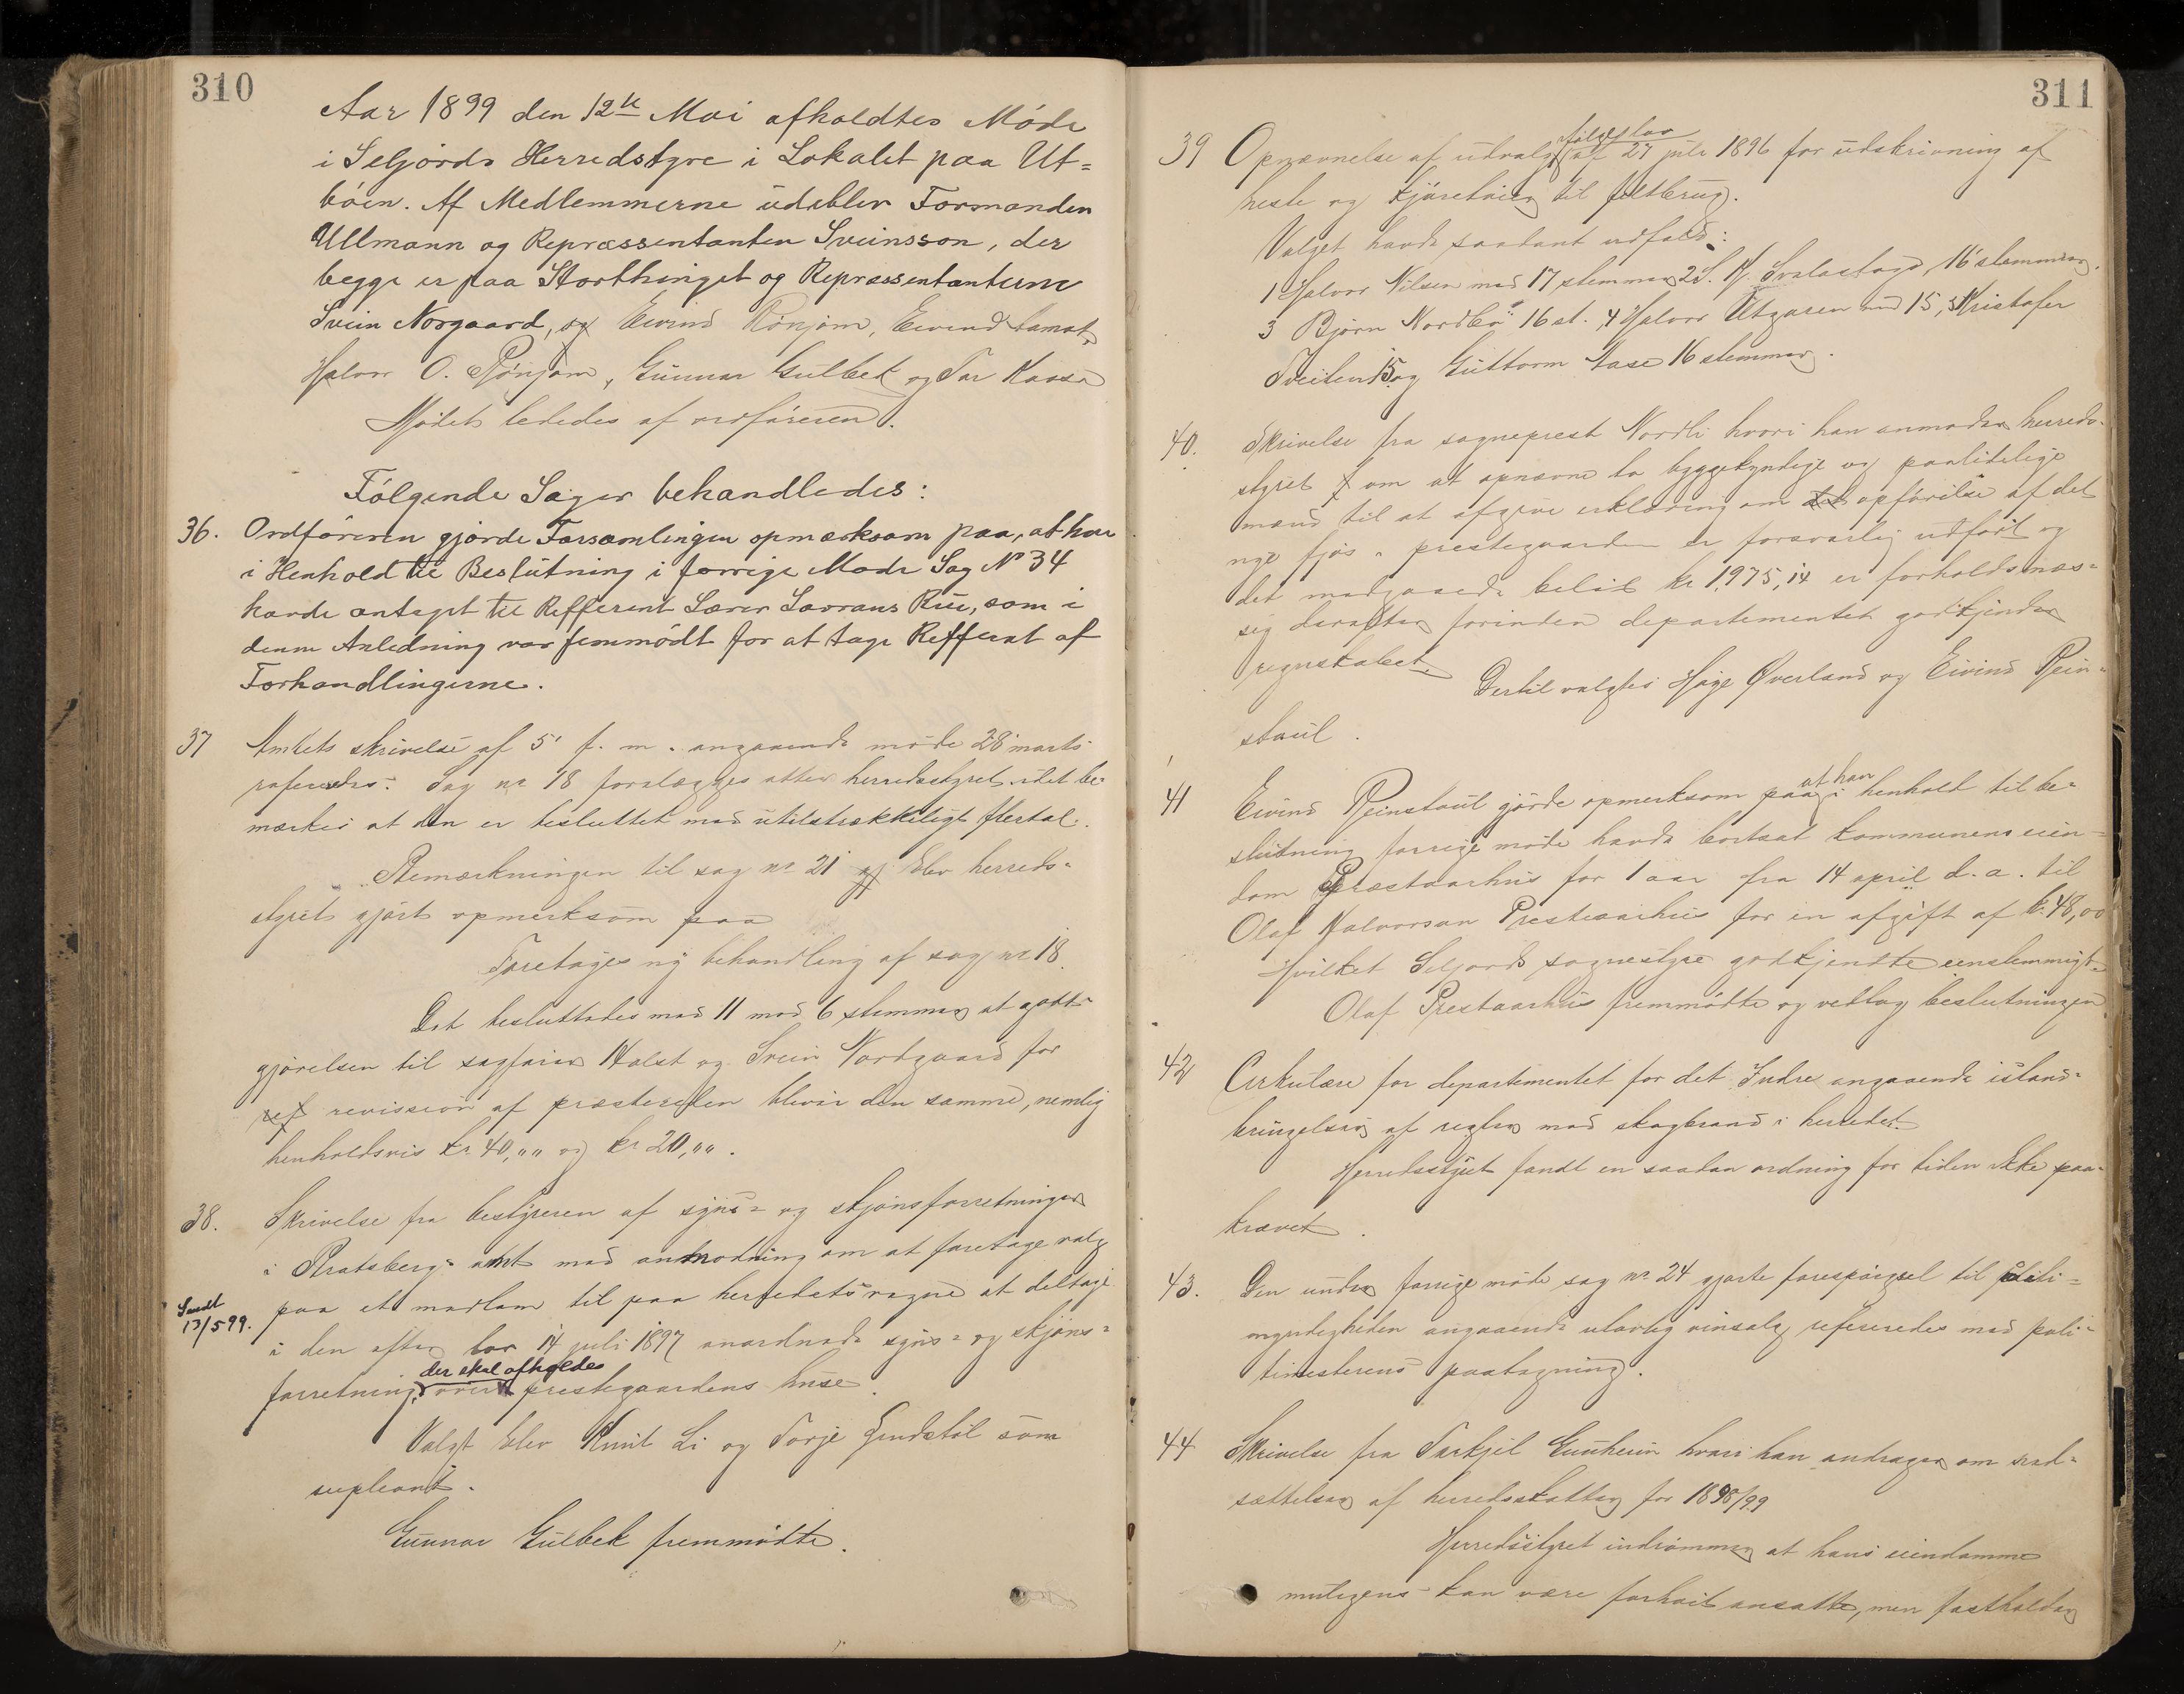 310
Aar 1899 den 12te Mai afholdtes Møde
i Seljords Herredstyre i Lokalet paa Ut=
bøen. Af Medlemmerne udeblev Formanden
Ullmann og Repræssentanten Sveinsson, der
begge er paa Storthinget og Repræssentanterne
Svein Norgaard, og Eivind Rønjom, Eivind
Halvor O. Rønjom, Gunnar Gulbek og Tor Kaasa
Mødet lededes af ordføreren.
Følgende Sager behandledes:
36. Ordføreren gjorde Forsamlingen opmærksom paa, at han
i Henhold til Beslutning i forrige Møde Sag No 34
havde antaget til Refferent Lærer Lavrans Rui, som i
denne Anledning var fremmødt for at tage Refferat af
Forhandlingerne.
37 Amtets skrivelse af 5' f. m. angaaende møde 28' marts
refereredes. Sag nr 18 forelægges atter herredsstyret idet be=
merkes at den er besluttet med utilstrækkeligt flertal.
Bemærkningen til sag nr 21 blev herreds=
styret gjort opmerksom paa
Foretages ny behandling af sag nr 18.
Det besluttedes med 11 mod 6 stemmer at godt=
gjørelsen til sagfører Holst og Svein Nordgaard for
ref revission af præsteretten blevir den samme, nemlig
henholdsvis kr 40,"" og kr 20,"".
38. Skrivelse fra bestyreren af syns= og skjønsforretninger
i Bratsberg= amt med anmodning om at foretage valg
Sendt
13/5 99.
paa et medlem til paa herredets vegne at deltage
i den efter lov 14 juli 1897 anordnede syns= og skjøns=
der skal afholdes
forretning over prestegaardens huse.
Valgt blev Knut Li og Torje som
supleant.
Gunnar Gulbek fremmødte.
311
følge lov
39 Opnævnelse af udvalg af 27 juli 1896 for udskrivning af
heste og kjøretøier til feltbrug.
Valget havde saadant udfald:
1 Halvor Nilsen med 17 stemmer 2 S. H. Svalastoga, 16 stemmer.
3 Bjørn Nordbø 16 st. 4 Halvor Utgaren med 15, 5 Kristofer
Tveiten 15 og Guttorm Aase 16 stemmer.
40. Skrivelse fra sogneprest Nordli hvori han anmoder herreds-
styret om at opnævne to byggekyndige og paalitelige
mænd til at afgive erklæring om det opførelse af det
nye fjøs i prestegaarden er forsvarlig utført og
det medgaaede beløb kr 1.975,14 er forholdsmæs=
sig derefter forinden departementet godkjender
regnskabet.
Dertil valgtes Høge Øverland og Eivind Rein-
staul.
at han
41 Eivind Reinstaul gjorde opmerksom paa i henhold til be=
slutning forrige møde havde bortsat kommunens eien=
dom Præstaarhus for 1 aar fra 14 april d. a. til
Olaf Halvorsen Prestaarhus for en afgift af kr. 48,00
Hvilket Seljords sognestyre godkjendte eenstemmigt.
Olaf Prestaarhus fremmødte og vedtog beslutningen
42 Cirkulære for departementet for det Indre angaaende istand=
bringelsen af regler mod skogbrand i herredet.
Herredsstyret fandt en saadan ordning for tiden ikke paa-
krævet.
43. Den under forrige møde sag nr. 24 gjorte forespørgsel til politi=
myndigheden angaaende ulovlig vinsalg refereredes med poli=
timesterens paategning.
44 Skrivelse fra Torkjel Gunheim hvori han andrager om ned=
sættelsen af herredsskatten for 1898/99
Herredsstyret indrømmer at hans eiendomme
muligens kan være forhøit ansatte, men fastholder